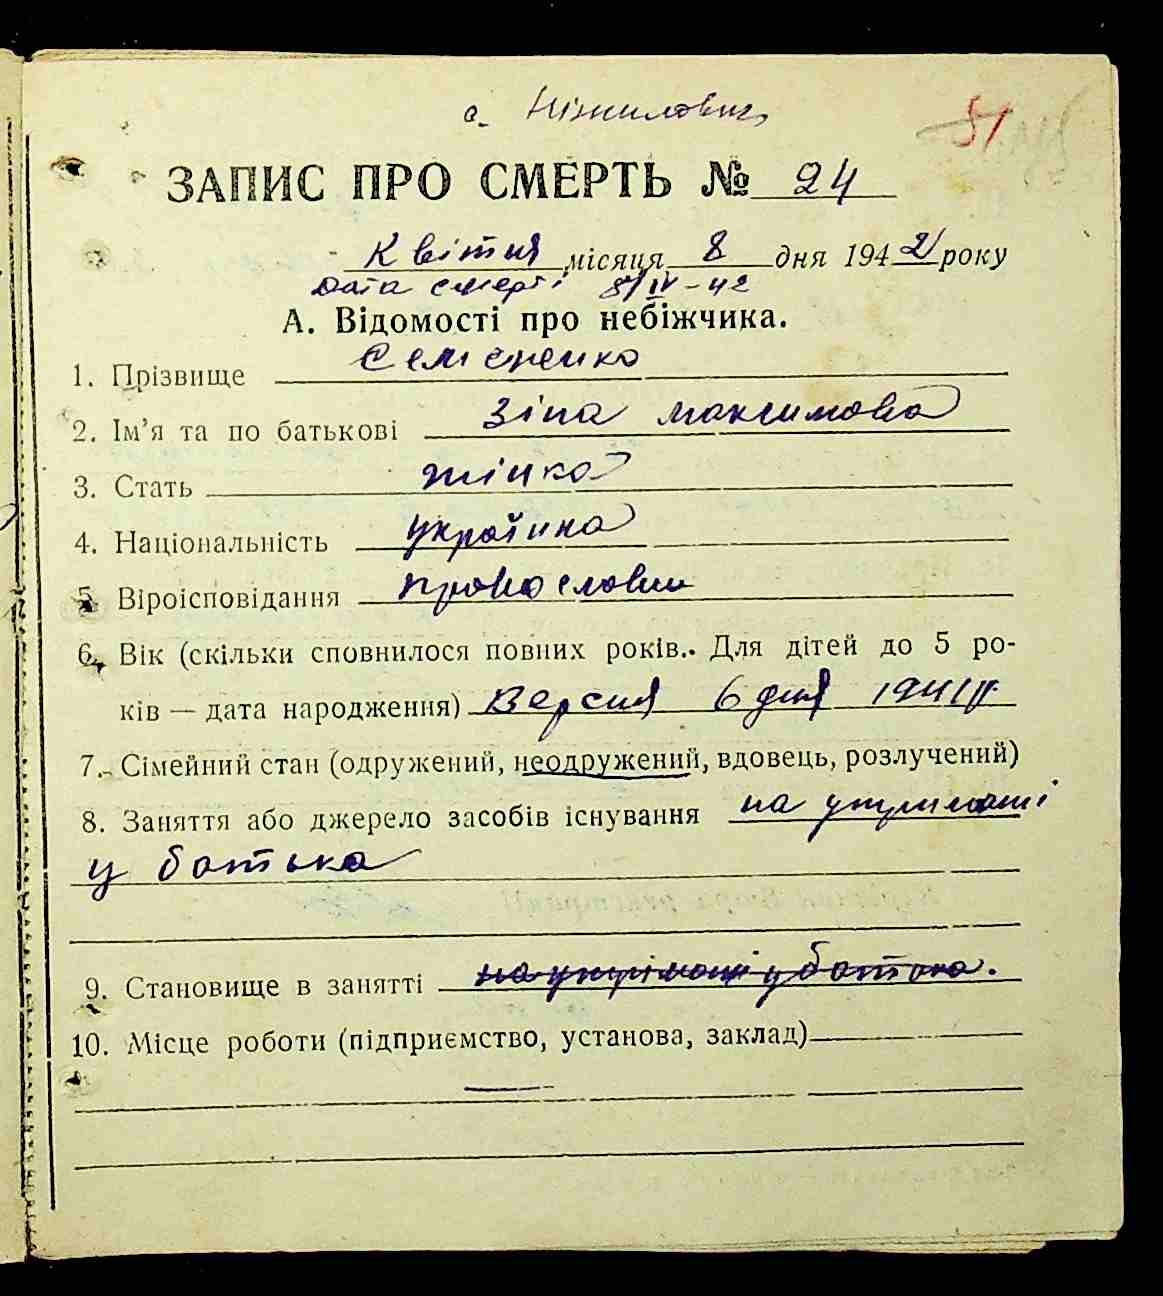 с. Ніжиловичі
51
ЗАПИС ПРО СМЕРТЬ № 24
Квітня місяця 8 дня 1942 року
Дата смерті 8/IV-42
А. Відомості про небіжчика.
1. Прізвище Семененко
2. Ім’я та по батькові Зіна Максимовна
3. Стать жінка
4. Національність українка
5. Віроісповідання православн
6. Вік (скільки сповнилося повних років. Для дітей до 5 ро-
ків — дата народження) Версня 6 дня 1941 р.
7. Сімейний стан (одружений, неодружений, вдовець, розлучений)
8. Заняття або джерело засобів існування на утриманні
у батька
9. Становище в занятті на утріманні у батька.
10. Місце роботи (підприємство, установа, заклад)
—